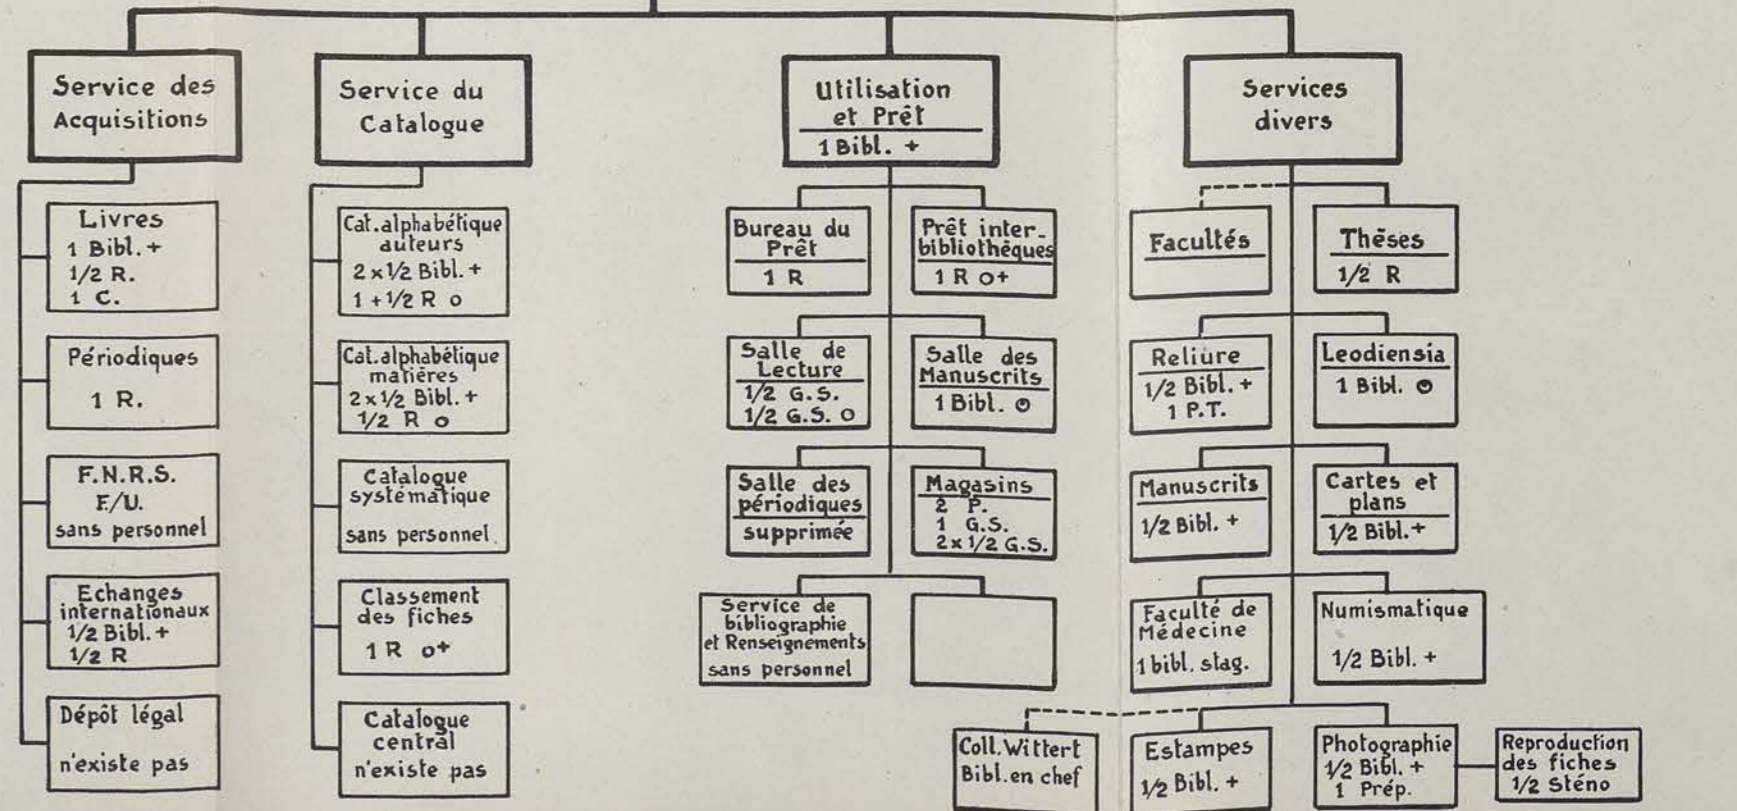 Service des
Acquisitions
Livres
1 Bibl. +
1/2 R.
1 C.
Périodiques
1 R.
F.N.R.S.
F./U.
sans personnel
Echanges
internationaux
1/2 Bibl. +
1/2 R
Dépôt légal
n'existe pas
Service du
Catalogue
Cat. alphabétique
auteurs
2 x 1/2 Bibl. +
1 + 1/2 R o
Cat. alphabétique
matières
2 x 1/2 Bibl. +
1/2 R o
Catalogue
systématique
sans personnel.
Classement
des fiches
1 R o+
Catalogue
central
n'existe pas
Utilisation
et Prêt
1 Bibl. +
Bureau du
Prêt
1 R
Prêt inter-
bibliothèques
1 R o+
Salle de
Lecture
1/2 G.S.
1/2 G.S. O
Salle des
Manuscrits
1 Bibl. ʘ
Salle des
périodiques
supprimée
Magasins
2 P.
1 G.S.
2 x 1/2 G.S.
Service de
bibliographie
et Renseignements
sans personnel
Services
divers
Facultés
Thèses
1/2 R
Reliure
1/2 Bibl. +
1 P.T.
Leodiensia
1 Bibl. ʘ
Manuscrits
1/2 Bibl. +
Cartes et
plans
1/2 Bibl. +
Faculté de
Médecine
1 bibl. stag.
Numismatique
1/2 Bibl. +
Coll. Wittert
Bibl. en chef
Estampes
1/2 Bibl. +
Photographie
1/2 Bibl. +
1 Prép.
Reproduction
des fiches
1/2 Sténo